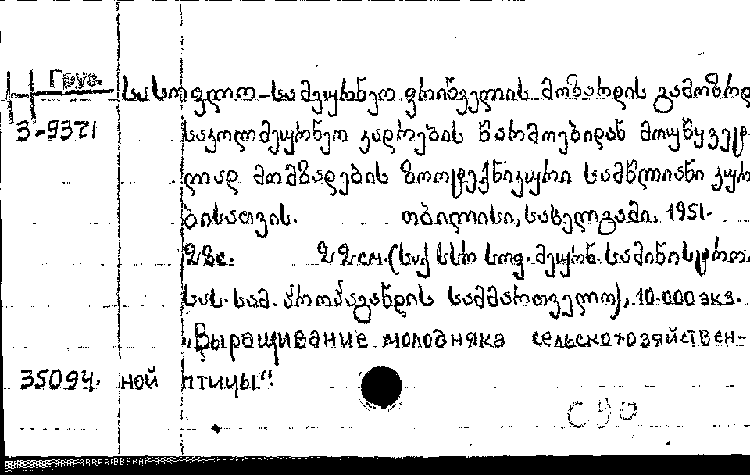 Груз.
სასოფლო-სამეურნეო ფრინველის მოზარდის გამოზრდ
3-9371 საკოლმეურნეო კადრების წარმოებიდან მოუწყვეტ-
ლად მომზადების ზოოტექნიკური სამწლიანი კურ
ბისათვის. თბილისი, სახელგამი. 1951.
22с. 22 см. (საქ სსრ სოფ. მეურნ. სამინისტრო.
სას. სამ. პროპაგანდის სამმართველო). 10.000 экз.
„Выращивание молодняка сельскохозяйствен-
35094. ной птицы“.
С 90